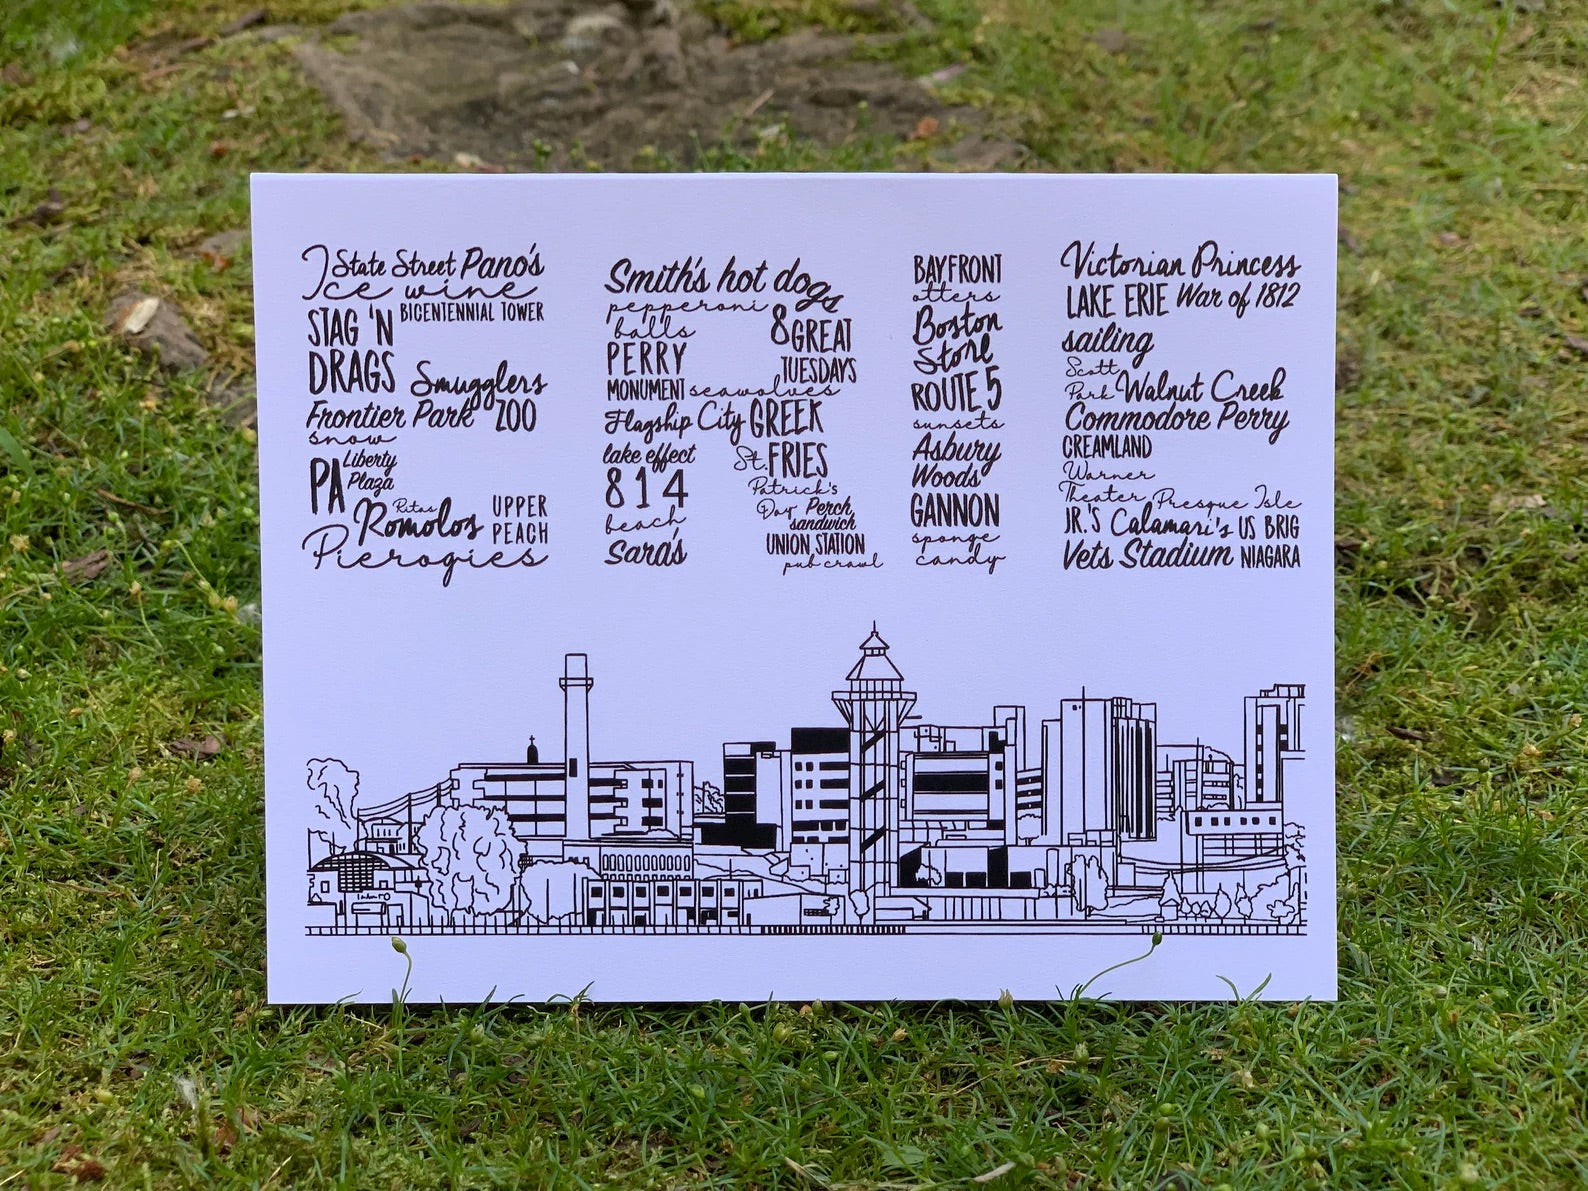 State Street Pano's
Ice wine
BICENTENNIAL TOWER
STAG 'N
DRAGS
Smugglers
Frontier Park ZOO
snow
PA Liberty
Plaza
Ritas
Romolos
UPPER
PEACH
Pierogies
Smith's hot dogs
pepperoni
balls
8 GREAT
TUESDAYS
PERRY
MONUMENT seawolves
Flagship City GREEK
FRIES
lake effect
814
beach
Sara's
St.
Patrick's
Day Perch
sandwich
UNION STATION
pub crawl
BAYFRONT
otters
Boston
Store
ROUTE 5
sunsets
Asbury
Woods
GANNON
sponge
candy
Victorian Princess
LAKE ERIE War of 1812
sailing
Scott
Park Walnut Creek
Commodore Perry
CREAMLAND
Warner
Theater Presque Isle
JR.'S Calamari's US BRIG
Vets Stadium NIAGARA